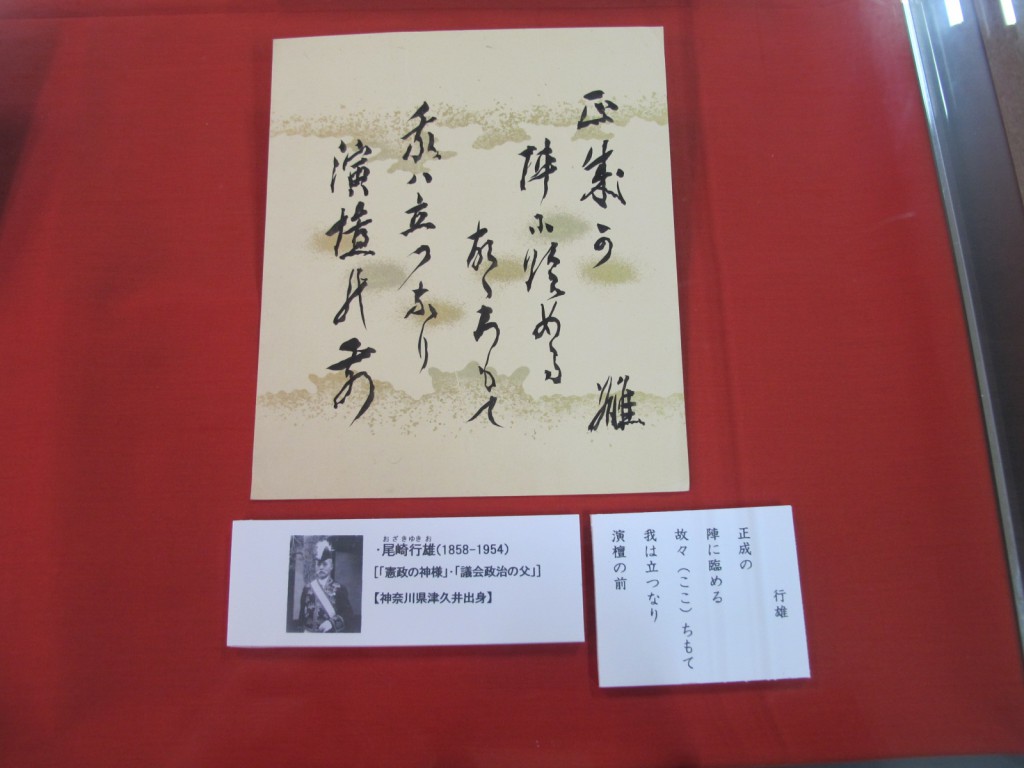 正成可
陣尓臨める
故々ちもて
我ハ立つなり
演壇能前
おざきゆきお
・尾崎行雄(1858-1954)
[「憲政の神様」・「議会政治の父」]
【神奈川県津久井出身】
行雄
正成の
陣に臨める
故々(ここ)ちもて
我は立つなり
演壇の前